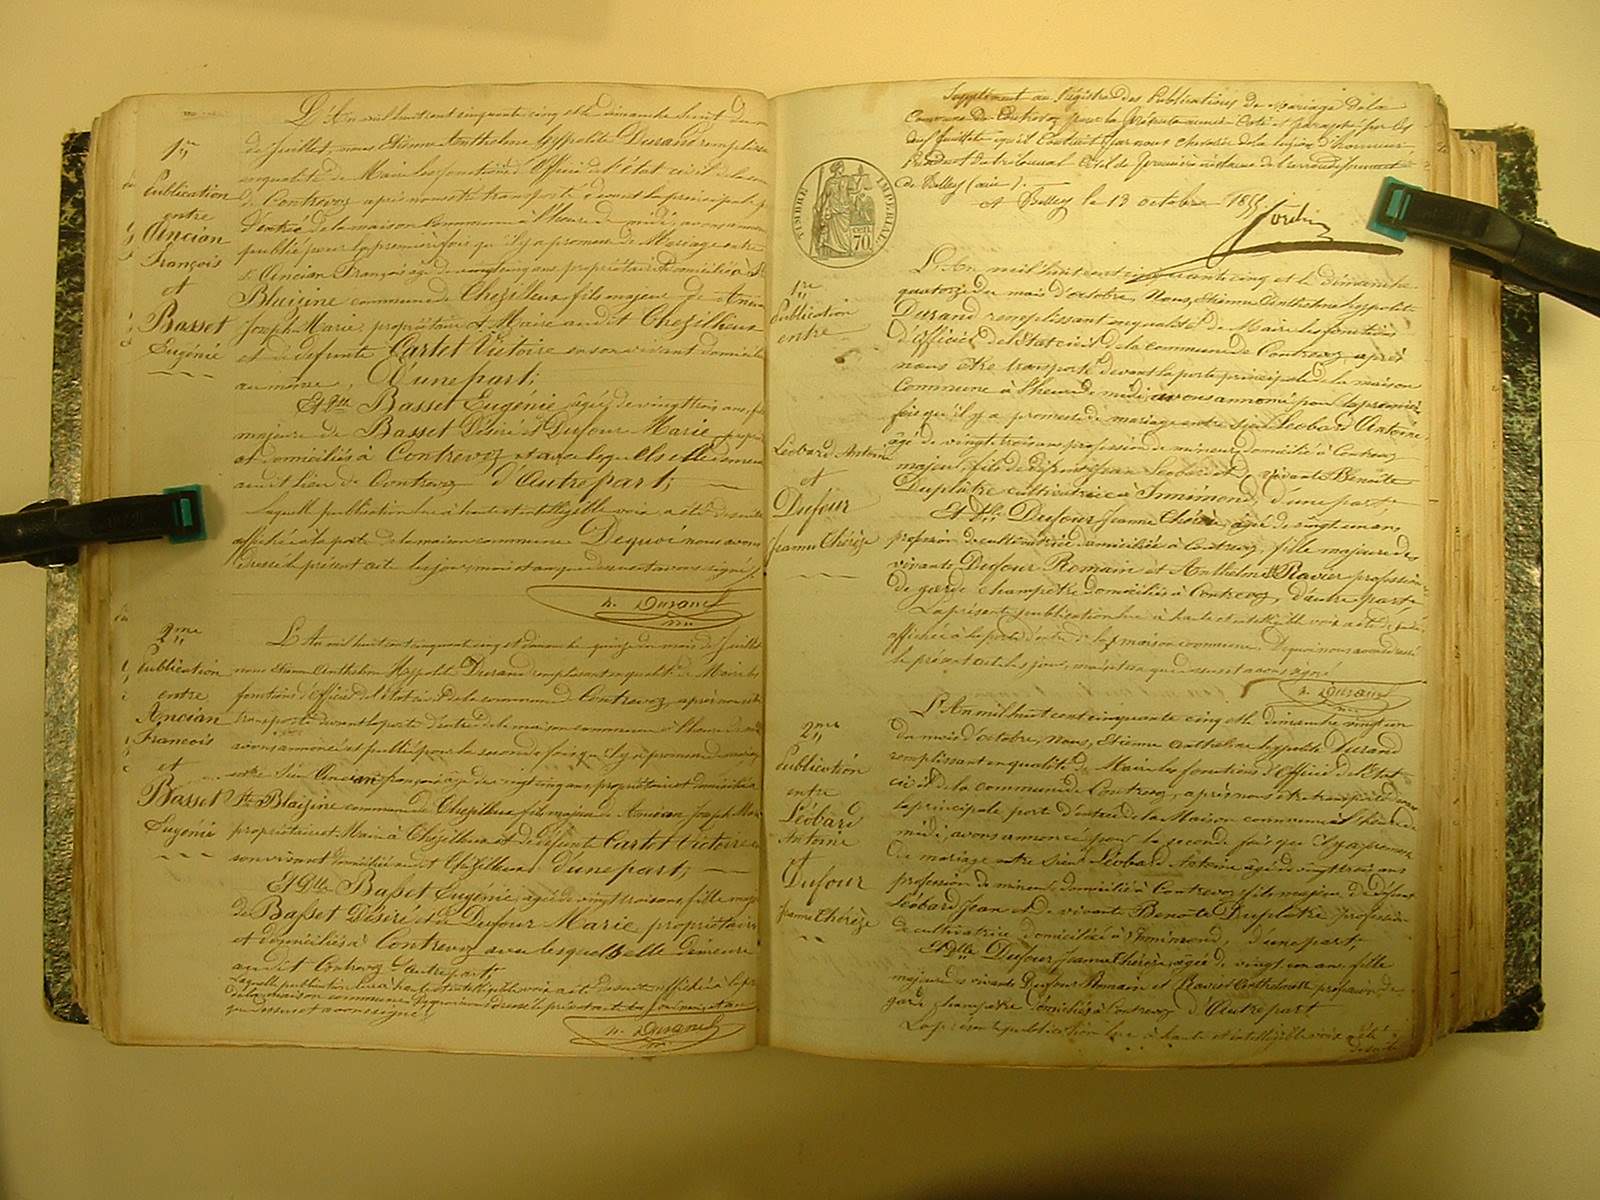 L'An mil huit cent cinquante cinq et le dimanche huit du
1re
Publication
entre
Ancian
François
et
Basset
Eugénie
de Juillet, nous Etienne Anthelme Hyppolite Durand remplissant
en qualité de Maire les fonctions d'Officier de l'état civil de la com
de Contrevoz après nous être transporté devant la principale p
d'entrée de la maison Commune à l'heure de midi, avons annoncé
publié pour la première fois qu'il y a promesse de Mariage entre
Sr Ancian François âgé de vingt cinq ans, propriétaire domicilié à St
Blaizine commune de Chezilleux fils majeur de Ancian
Joseph Marie, propriétaire et Maire au dit Chezilleux
et de défunte Cartet Victoire en son vivant domiciliée
au même, D'une part;
Et Dlle Basset Eugénie âgée de vingt trois ans, fille
majeure de Basset Désiré et Dufour Marie propriét
et domiciliés à Contrevoz et avec lesquels elle demeure
au dit lieu de Contrevoz d'Autre part;
Laquelle publication lue à haute et intelligible voix a été de suite
affichée à la porte de la maison commune De quoi nous avons
Dressé le présent acte les jour, mois et an que dessus et avons signé
h. Durand
2me
Publication
entre
Ancian
François
et
Basset
Eugénie
L'An mil huit cent cinquante cinq et dimanche quinze du mois de Juillet
nous Etienne Anthelme Hyppolite Durand remplissant en qualité de Maire les
fonctions d'Officier de l'état civil de la commune de Contrevoz, après nous être
transporté devant la porte d'entrée de la maison commune à l'heure de midi
avons annoncé et publié pour la seconde fois que il y a promesse de mariage
entre Sieur Ancian françois âgé de vingt cinq ans, propriétaire et domicilié à
Ste Blaizine commune de Chezilleux fils majeur de Ancian Joseph Marie
propriétaire et Maire à Chezilleux et de défunte Cartet Victoire en
son vivant domiciliée au dit Chezilleux d'une part;
Et Dlle Basset Eugénie âgée de vingt trois ans, fille maj
de Basset Désiré et de Dufour Marie propriétaires
et domiciliés à Contrevoz avec lesquels elle demeure
au dit Contrevoz d'autre part;
Laquelle publication lue à haute et intelligible voix a été de suite affichée à la por
de la maison commune De quoi nous avons dressé le présent acte les jour, mois et an
que dessus et avons signé
h. Durand
Supplément au Régistre des Publications de Mariage de la
Commune de Contrevoz pour la présente année Coté et paraphé sur les
deux feuillets qu'il Contient par nous chevalier de la légion d'honneur
Président du tribunal civil de première instance de l'arrondissement
de Belley (ain).
A Belley le 13 octobre 1855
TIMBRE IMPÉRIAL
70
1re
Publication
entre
Léobard Antoine
et
Dufour
Jeanne Thérèze
L'An mil huit cent cinquante cinq et le dimanche
quatorze du mois d'octobre, Nous, Etienne Anthelme hyppolite
Durand remplissant en qualité de Maire les fonctions
d'Officier de l'état civil de la commune de Contrevoz après
nous être transporté devant la porte principale de la maison
Commune à l'heure de midi, avons annoncé pour la première
fois qu'il y a promesse de mariage entre Sieur Léobard Antoine
âgé de vingt trois ans profession de mineur, domicilié à Contrevoz
majeur, fils de défunt Jean Léobard et de vivante Benoîte
Duplâtre cultivatrice à Innimond, d'une part,
Et Dlle Dufour Jeanne Thérèse, âgée de vingt un ans,
profession de cultivatrice domiciliée à Contrevoz, fille majeure de
vivants Dufour Romain et Anthelmette Ravier profession
de garde champêtre domiciliés à Contrevoz, d'autre part,
La présente publication lue à haute et intelligible voix a été de suite
affichée à la porte d'entrée de la maison commune. De quoi nous avons dressé
le présent acte les jour, mois et an que dessus et avons signé
h. Durand
2me
Publication
entre
Léobard
Antoine
et
Dufour
Jeanne Thérèze
L'An mil huit cent cinquante cinq et le dimanche vingt un
du mois d'octobre, Nous, Etienne Anthelme hyppolite Durand
remplissant en qualité de Maire les fonctions d'Officier de l'Etat
civil de la commune de Contrevoz, après nous être transporté devant
la principale porte d'entrée de la Maison commune à l'heure de
midi, avons annoncé pour la seconde fois que il y a promesse
de mariage entre Sieur Léobard Antoine âgé de vingt trois ans
profession de mineur domicilié à Contrevoz, fils majeur de défunt
Léobard Jean et de vivante Benoîte Duplâtre profession
de cultivatrice domiciliée à Innimond, d'une part,
Et Dlle Dufour Jeanne Thérèse, âgée de vingt un ans, fille
majeure de vivants Dufour Romain et Ravier Anthelmette profession de
garde champêtre domiciliés à Contrevoz d'Autre part
La présente publication lue à haute et intelligible voix a été
de suite